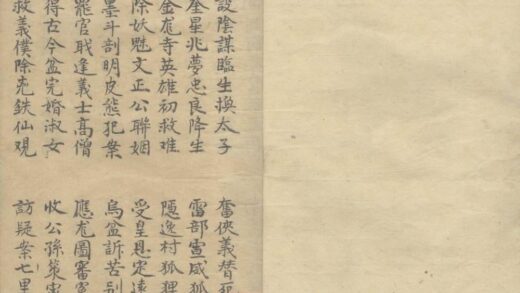 設陰謀臨生換太子 奮俠義替死
奎星兆夢忠良降生 雷部宣威狐
金龙寺英雄初救难 隱逸村狐狸
除妖魅文正公聯姻 受皇恩定遠
墨斗剖明皮熊犯案 烏盆訴苦别
罷官戝逢義士高僧 應龙圖審寃
得古今盆完婚淑女 收公孫策
救義僕除兇鉄仙观 訪疑案七里